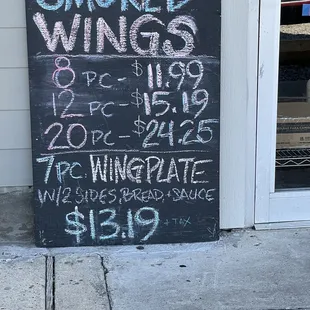 SMOKED
WINGS
8 PC - $11.99
12 PC - $15.19
20 PC - $24.25
7PC. WINGPLATE
W/2 SIDES, BREAD, + SAUCE
$13.19 + TAX